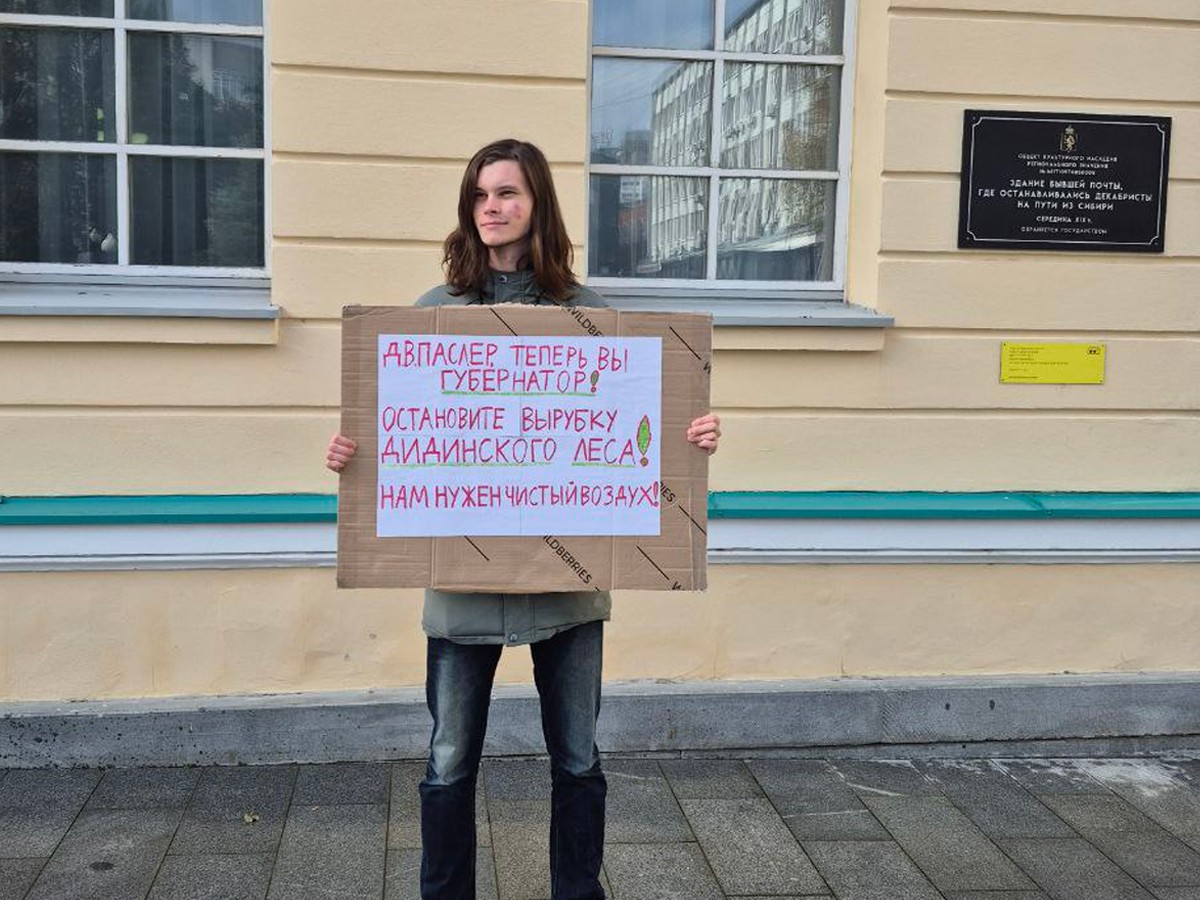 Д.В.ПАСЛЕР, ТЕПЕРЬ ВЫ
ГУБЕРНАТОР!
ОСТАНОВИТЕ ВЫРУБКУ
ДИДИНСКОГО ЛЕСА!
НАМ НУЖЕН ЧИСТЫЙ ВОЗДУХ!
WILDBERRIES
ОБЪЕКТ КУЛЬТУРНОГО НАСЛЕДИЯ
РЕГИОНАЛЬНОГО ЗНАЧЕНИЯ
ЗДАНИЕ БЫВШЕЙ ПОЧТЫ,
ГДЕ ОСТАНАВЛИВАЛИСЬ ДЕКАБРИСТЫ
НА ПУТИ ИЗ СИБИРИ
СЕРЕДИНА XIX в.
ОХРАНЯЕТСЯ ГОСУДАРСТВОМ